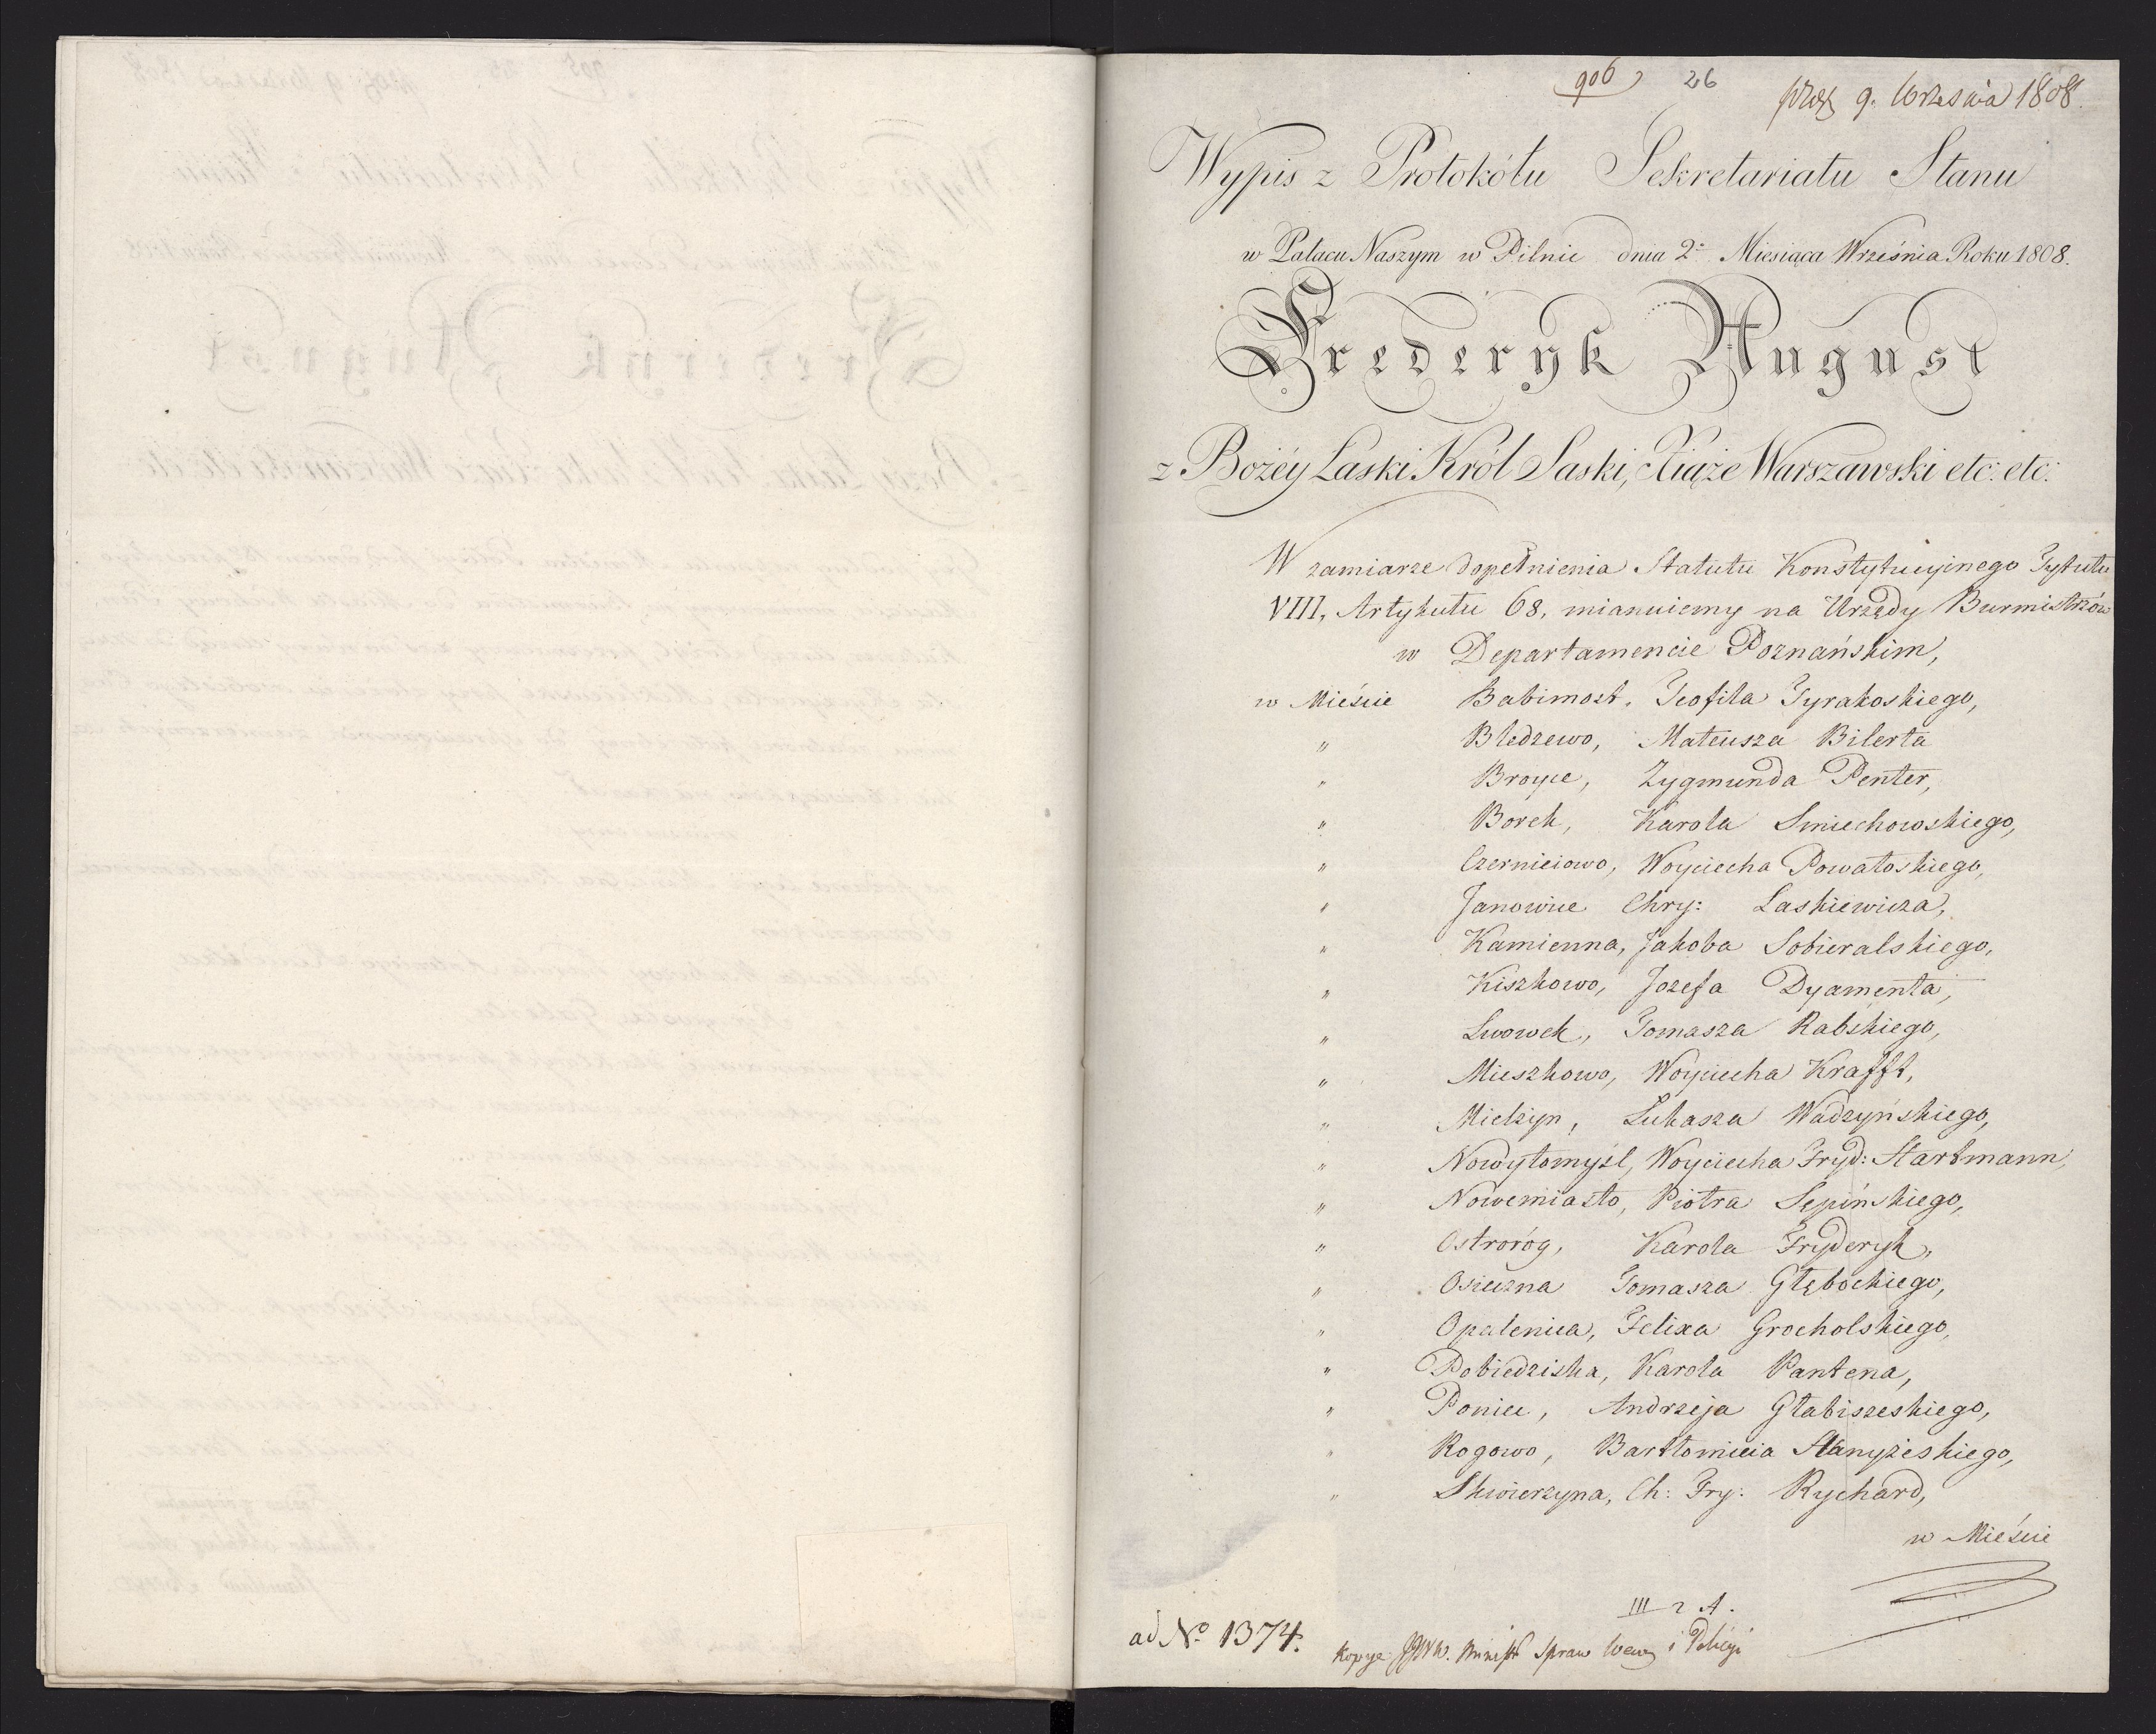 906 26 prez 9. Września 1808.
Wypis z Protokółu Sekretariatu Stanu
w Pałacu Naszym w Pilnic dnia 2º Miesiąca Września Roku 1808.
Frederyk August
z Bożéy Łaski Król Saski, Xiąże Warszawski etc: etc:
W zamiarze dopełnienia Statutu Konstytucyinego Tytułu
VIII, Artykułu 68, mianuiemy na Urzędy Burmistrzów
w Departamencie Poznańskim,
w Mieście Babimost, Teofila Tyrakoskiego,
" Bledzewo, Mateusza Bilerta
" Broyce, Zygmunda Penter,
" Borek, Karola Smiechowskiego,
" Czerniciowo, Woyciecha Powałoskiego,
" Janowice Chry: Laskiewicza,
" Kamienna, Jakoba Sobieralskiego,
" Kiszkowo, Jozefa Dyamenta,
" Lwowek, Tomasza Rabskiego,
" Mieszkowo, Woyciecha Krafft,
" Mielzyn, Łukasza Wadzyńskiego,
" Nowytomyśl, Woyciecha Fryd: Hartmann,
" Nowemiasto, Piotra Sępińskiego,
" Ostroróg, Karola Fryderyk,
" Osieczna Tomasza Głębockiego,
" Opalenica, Felixa Grocholskiego,
" Pobiedziska, Karola Pantena,
" Poniec, Andrzeja Głabiszeskiego,
" Rogowo, Bartłomieia Stanyżeskiego,
" Skwierzyna, Ch: Fry: Rychard,
w Mieście
III 2 A.
ad Nº 1374.
Kopye JPWW. Minist Spraw Wew i Policyi